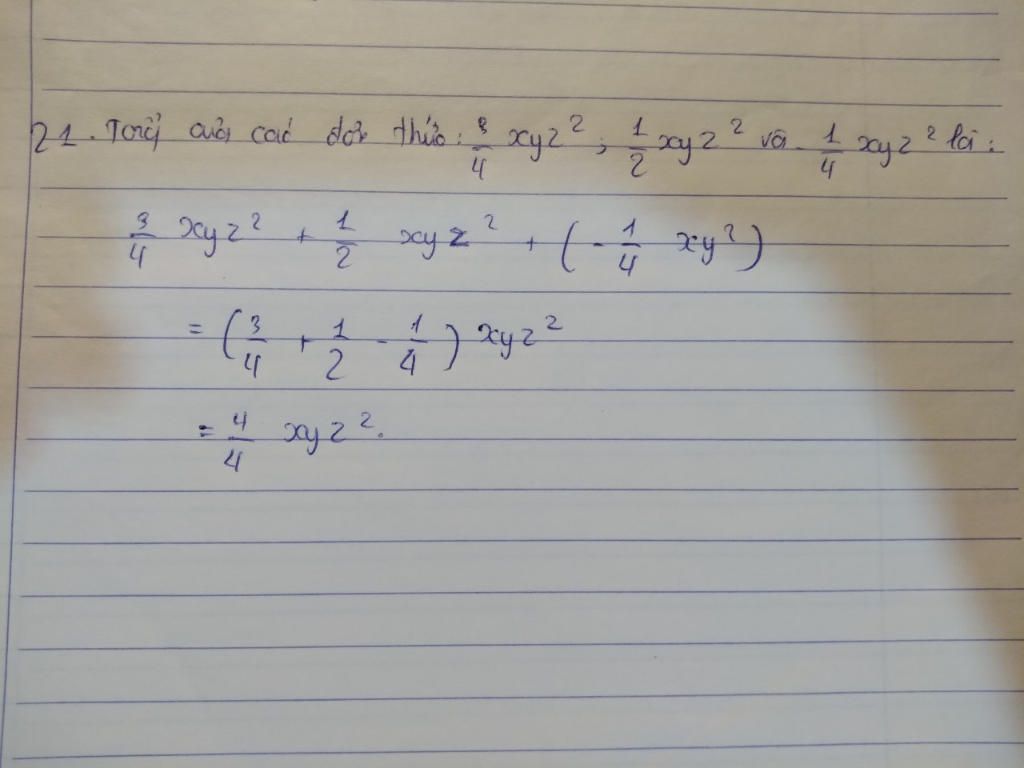 21. Tổng của các đơn thức: 3/4 xyz²; 1/2 xyz² và - 1/4 xyz² là:
3/4 xyz² + 1/2 xyz² + (- 1/4 xy²)
= (3/4 + 1/2 - 1/4) xyz²
= 4/4 xyz².